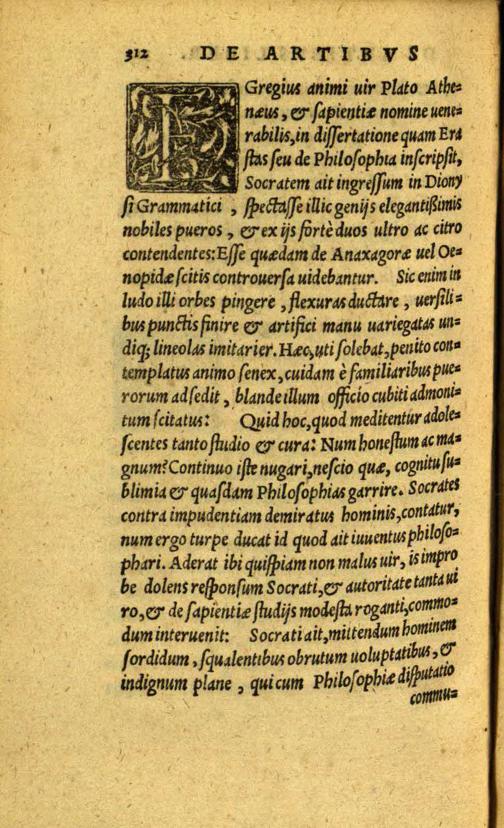 312 DE ARTIBVS
EGregius animi uir Plato Athe=
næus, & sapientiæ nomine uene=
rabilis, in dissertatione quam Era
stas seu de Philosophia inscripsit,
Socratem ait ingressum in Diony
si Grammatici, spectasse illic genijs elegantißimis
nobiles pueros, & ex ijs fortè duos ultro ac citro
contendentes: Esse quædam de Anaxagoræ uel Oe=
nopidæ scitis controuersa uidebantur. Sic enim in
ludo illi orbes pingere, flexuras ductare, uersili=
bus punctis finire & artifici manu uariegatas un=
diq; lineolas imitarier. Hæc, uti solebat, penito con=
templatus animo senex, cuidam è familiaribus pue=
rorum adsedit, blande illum officio cubiti admoni=
tum scitatus: Quid hoc, quod meditentur adole=
scentes tanto studio & cura: Num honestum ac ma=
gnum? Continuo iste nugari, nescio quæ, cognitu su=
blimia & quasdam Philosophias garrire. Socrates
contra impudentiam demiratus hominis, contatur,
num ergo turpe ducat id quod ait iuuentus philoso=
phari. Aderat ibi quispiam non malus uir, is impro
be dolens responsum Socrati, & autoritate tanta ui
ro, & de sapientiæ studijs modesta roganti, commo=
dum interuenit: Socrati ait, mittendum hominem
sordidum, squalentibus obrutum uoluptatibus, &
indignum plane, qui cum Philosophiæ disputatio
commu=